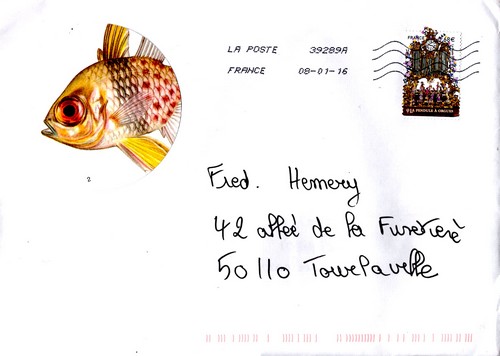 LA POSTE 39289A
FRANCE 08-01-16
FRANCE
LA PENDULE À ORGUES
2
Fred. Hemery
42 allée de la Furetière
50110 Tourlaville